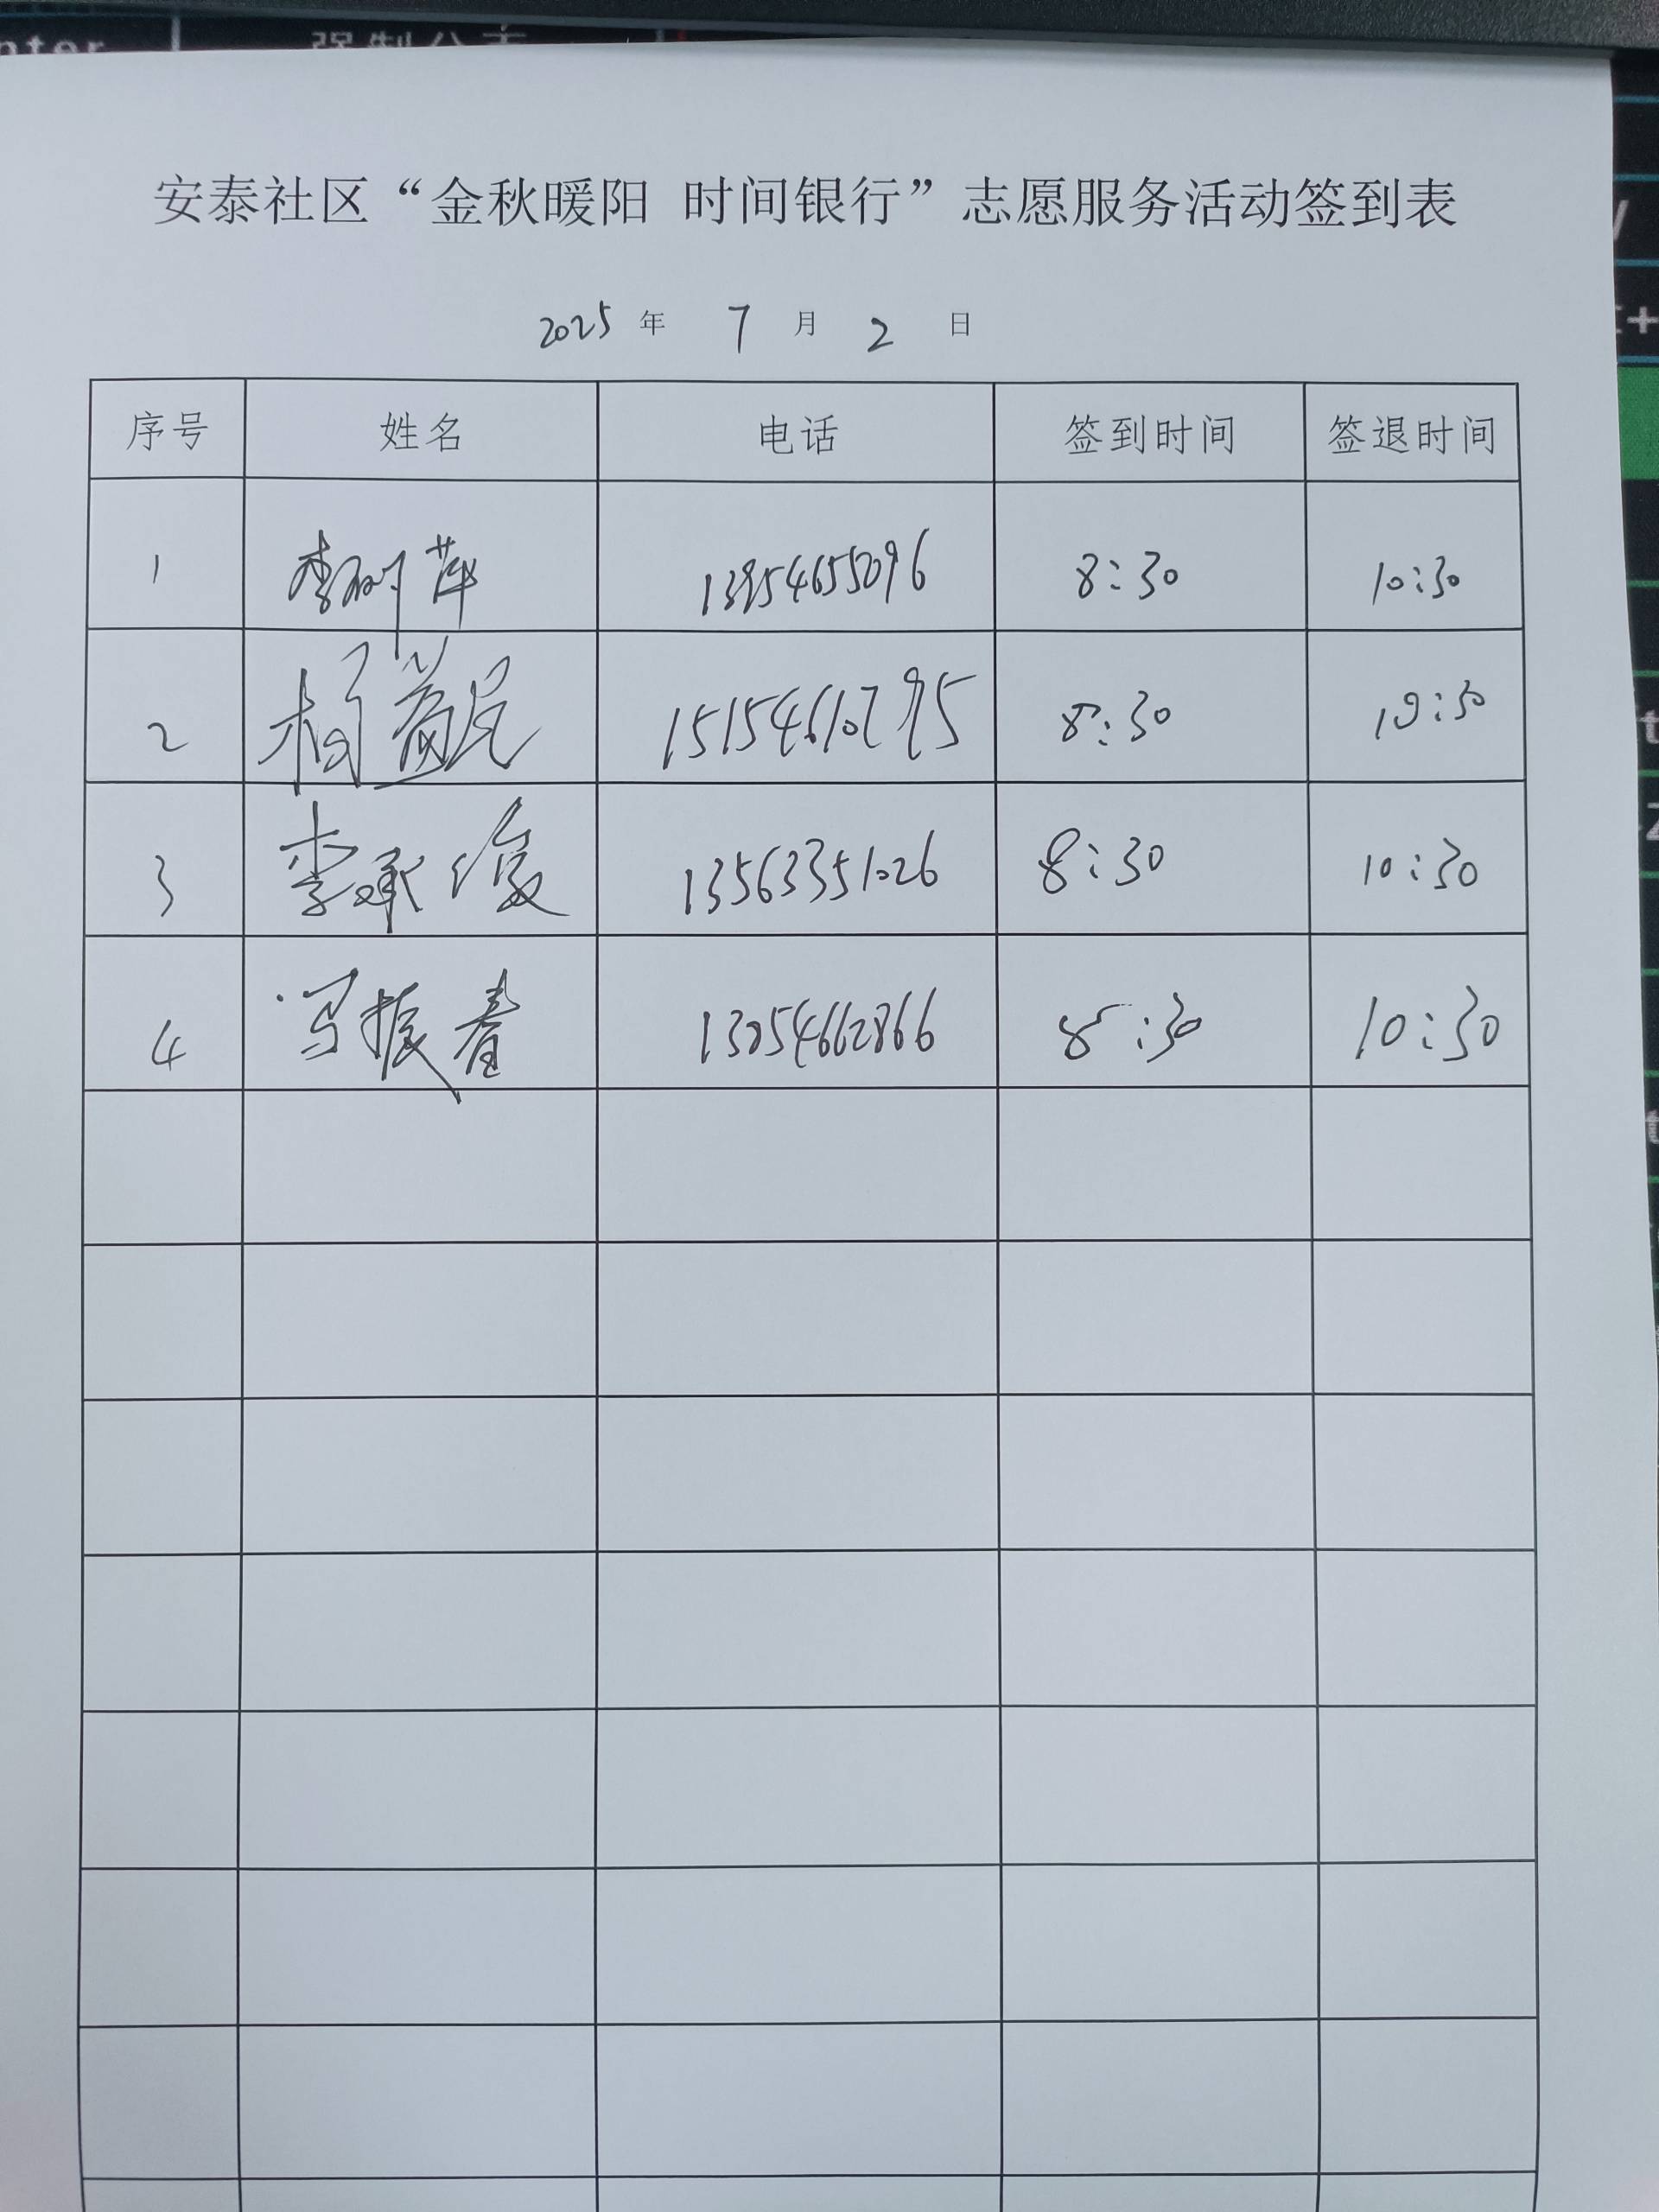 强制分页
安泰社区“金秋暖阳 时间银行”志愿服务活动签到表
2025 年 7 月 2 日
序号 姓名 电话 签到时间 签退时间
1 李树萍 8:30 10:30
2 15154610795 8:30 10:30
3 李承俊 13563351026 8:30 10:30
4 冯振春 13854662866 8:30 10:30